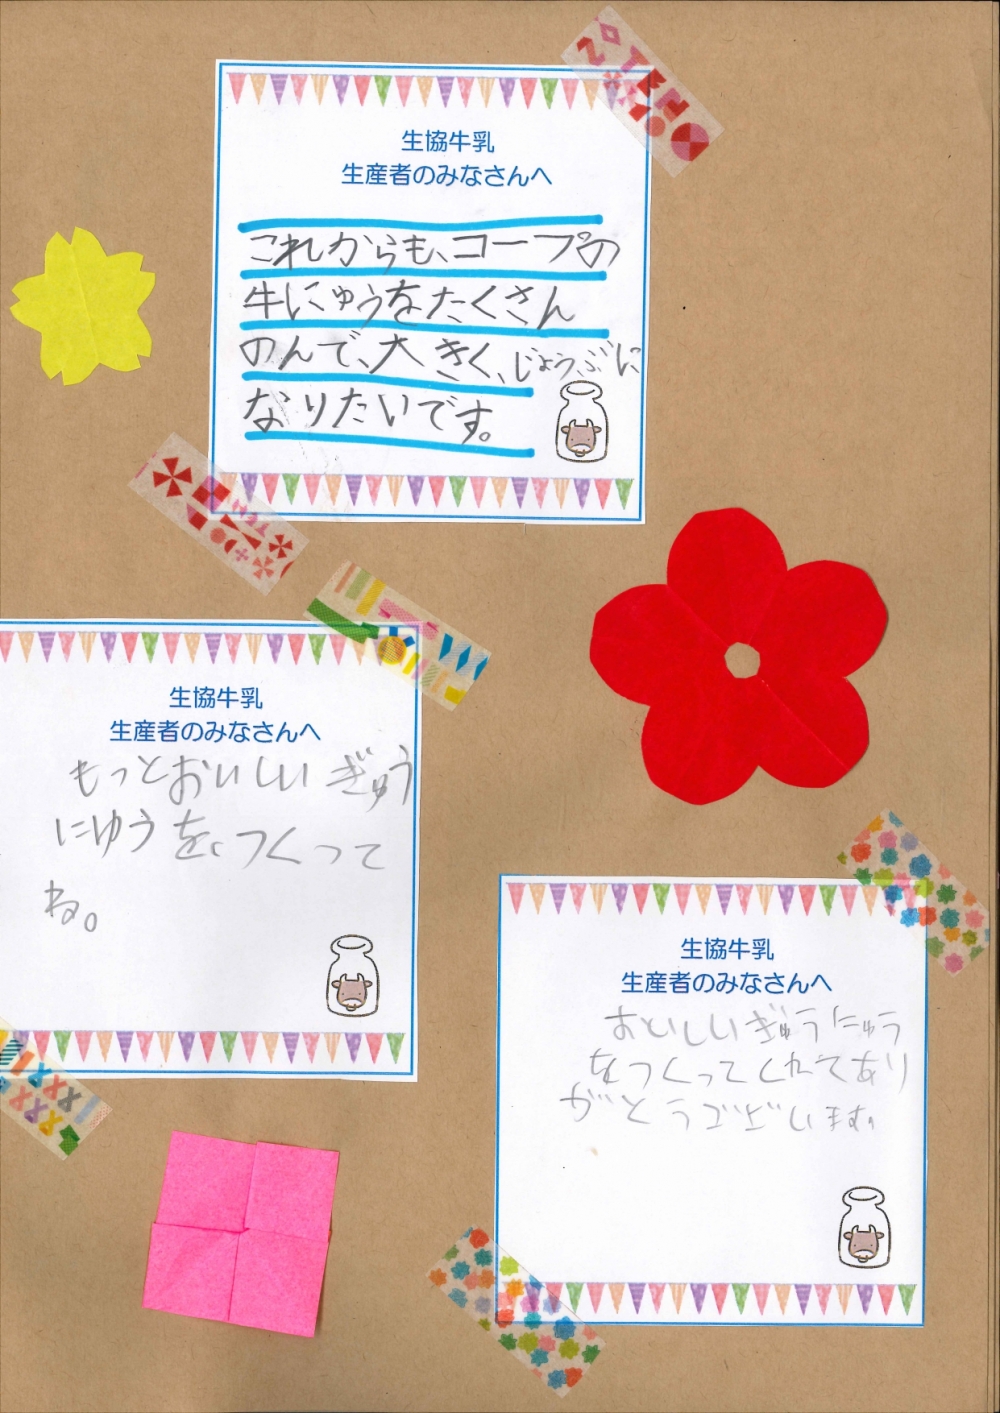 生協牛乳
生産者のみなさんへ
これからも、コープの
牛にゅうをたくさん
のんで、大きく、じょうぶに
なりたいです。
生協牛乳
生産者のみなさんへ
もっとおいしいぎゅう
にゅうを、つくって
ね。
生協牛乳
生産者のみなさんへ
おいしいぎゅうにゅう
をつくってくれてあり
がとうございます。